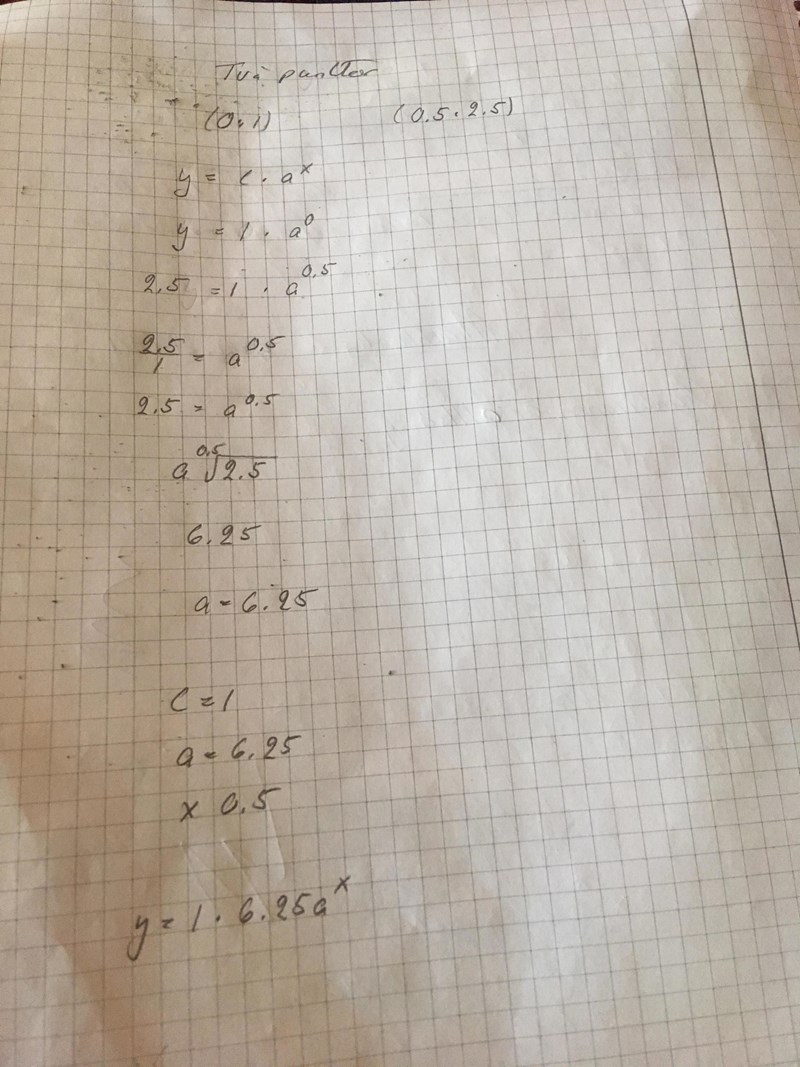 Två punkter
(0.1) (0.5.2.5)
y = C · a^x
y = 1 · a^0
2.5 = 1 · a^0.5
2.5/1 = a^0.5
2.5 = a^0.5
a ^0.5√2.5
6.25
a = 6.25
C = 1
a = 6.25
x 0.5
y = 1 · 6.25a^x